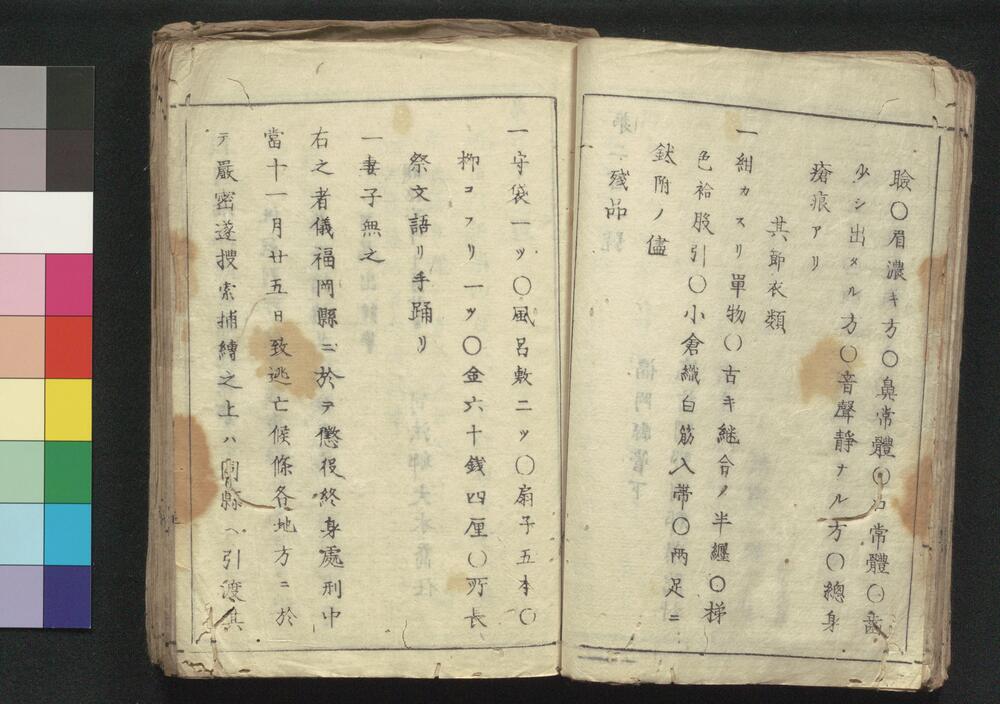 瞼〇眉濃キ方〇鼻常體〇口常體〇齒
少シ出タル方〇音聲靜ナル方〇總身
瘡痕アリ
其節衣類
一紺カスリ單物〇古キ継合ノ半纏〇梯
色袷股引〇小倉織白筋入帯〇兩足ニ
鈦附ノ儘
殘品
一守袋一ツ〇風呂敷二ツ〇扇子五本〇
柳コフリ一ツ〇金六十銭四厘〇所長
祭文語リ手踊リ
一妻子無之
右之者儀福岡縣ニ於テ懲役終身處刑中
當十一月廿五日致逃亡候條各地方ニ於
テ嚴密遂搜索捕縛之上ハ同縣ヘ引渡其